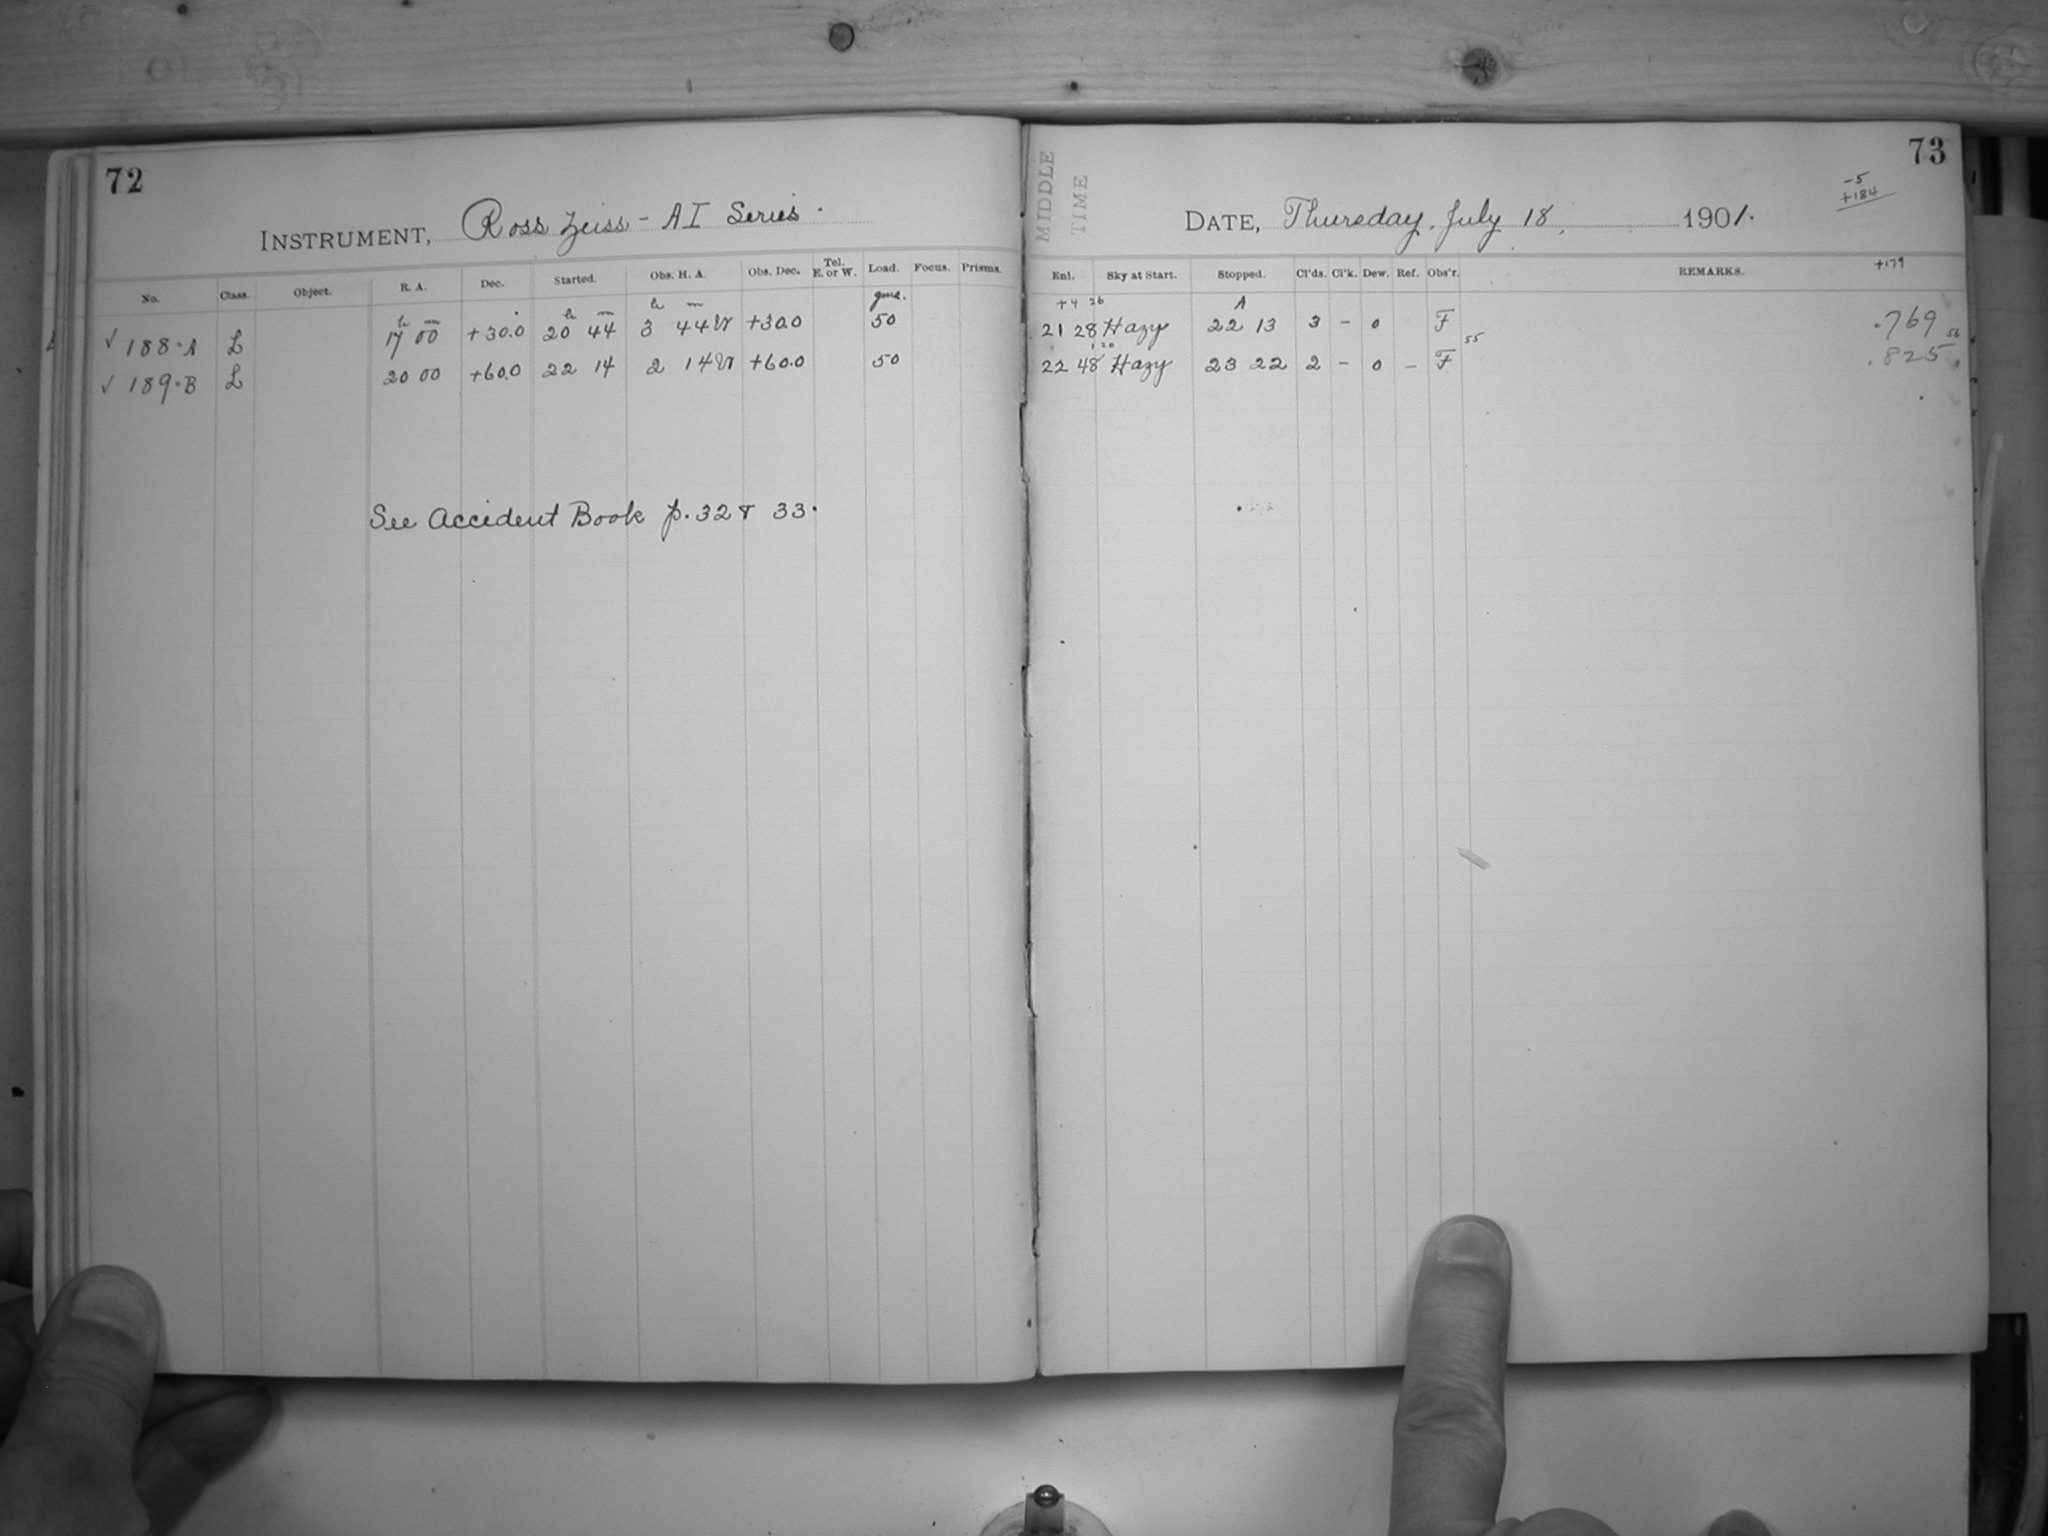 72
INSTRUMENT, Ross Zeiss - AI Series.
No. Class. Object. R. A. Dec. Started. Obs. H. A. Obs. Dec. Tel. E. or W. Load. Focus. Prisms.
h m ° h m h m gms.
✓ 188·A L 17 00 +30.0 20 44 3 44 W +30.0 50
✓ 189·B L 20 00 +60.0 22 14 2 14 W +60.0 50
See Accident Book p. 32 & 33.
73
MIDDLE
TIME
-5
+184
DATE, Thursday, July 18, 1901.
+179
Enl. Sky at Start. Stopped. Cl'ds. Cl'k. Dew. Ref. Obs'r. REMARKS.
+4 26 A
21 28 Hazy 22 13 3 - 0 F .769
1 20 55 56
22 48 Hazy 23 22 2 - 0 - F .825